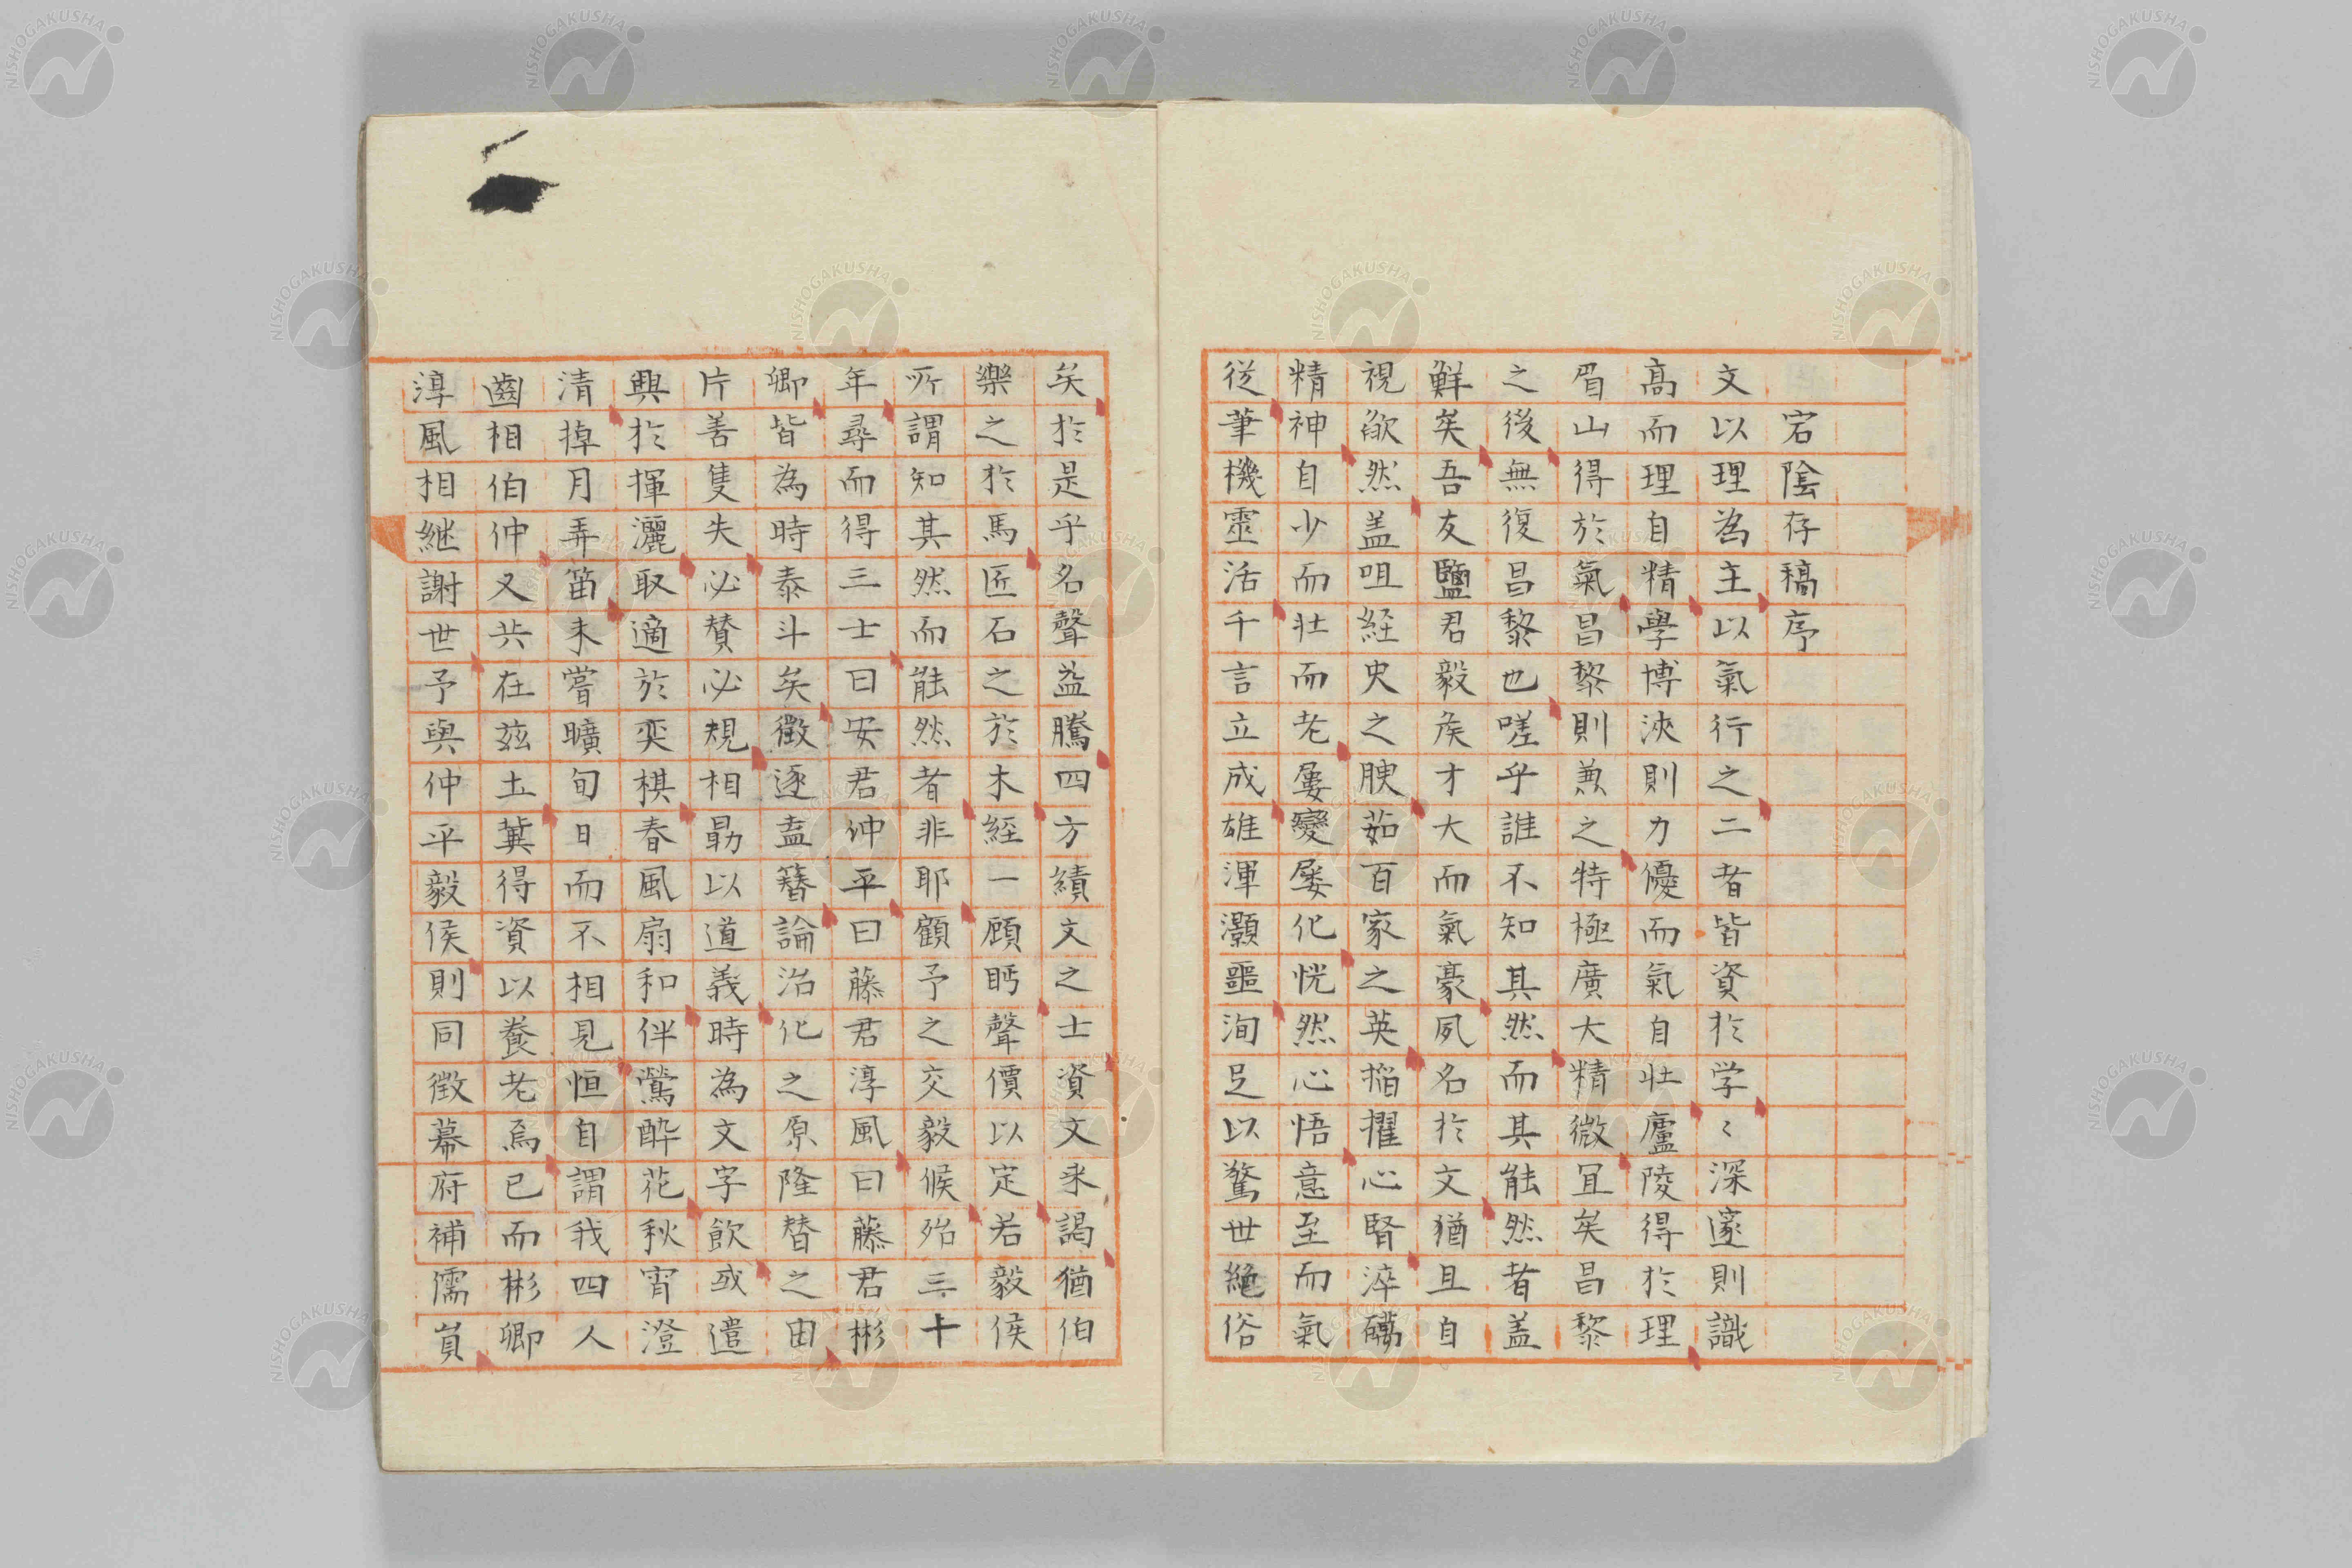 宕陰存稿序
文以理為主以氣行之二者皆資於学〻深邃則識
高而理自精學博浹則力優而氣自壯廬陵得於理
眉山得於氣昌黎則兼之特極廣大精微宜矣昌黎
之後無復昌黎也嗟乎誰不知其然而其能然者盖
鮮矣吾友鹽君毅矦才大而氣豪夙名於文猶且自
視欿然盖咀經史之腴茹百家之英搯擢心腎淬礪
精神自少而壯而老屢變屢化恍然心悟意至而氣
從筆機靈活千言立成雄渾灝噩洵足以驚世絶俗
矣於是乎名聲益騰四方績文之士資文来謁猶伯
樂之於馬匠石之於木經一顧眄聲價以定若毅侯
所謂知其然而能然者非耶顧予之交毅候殆三十
年尋而得三士曰安君仲平曰藤君淳風曰藤君彬
卿皆為時泰斗矣徵逐盍簪論治化之原隆替之由
片善隻失必賛必規相勗以道義時為文字飲或遣
興於揮灑取適於奕棋春風扇和伴鶯酔花秋宵澄
清掉月弄笛未嘗曠旬日而不相見恒自謂我四人
齒相伯仲又共在茲土冀得資以養老焉已而彬卿
淳風相継謝世予與仲平毅侯則同徴幕府補儒員